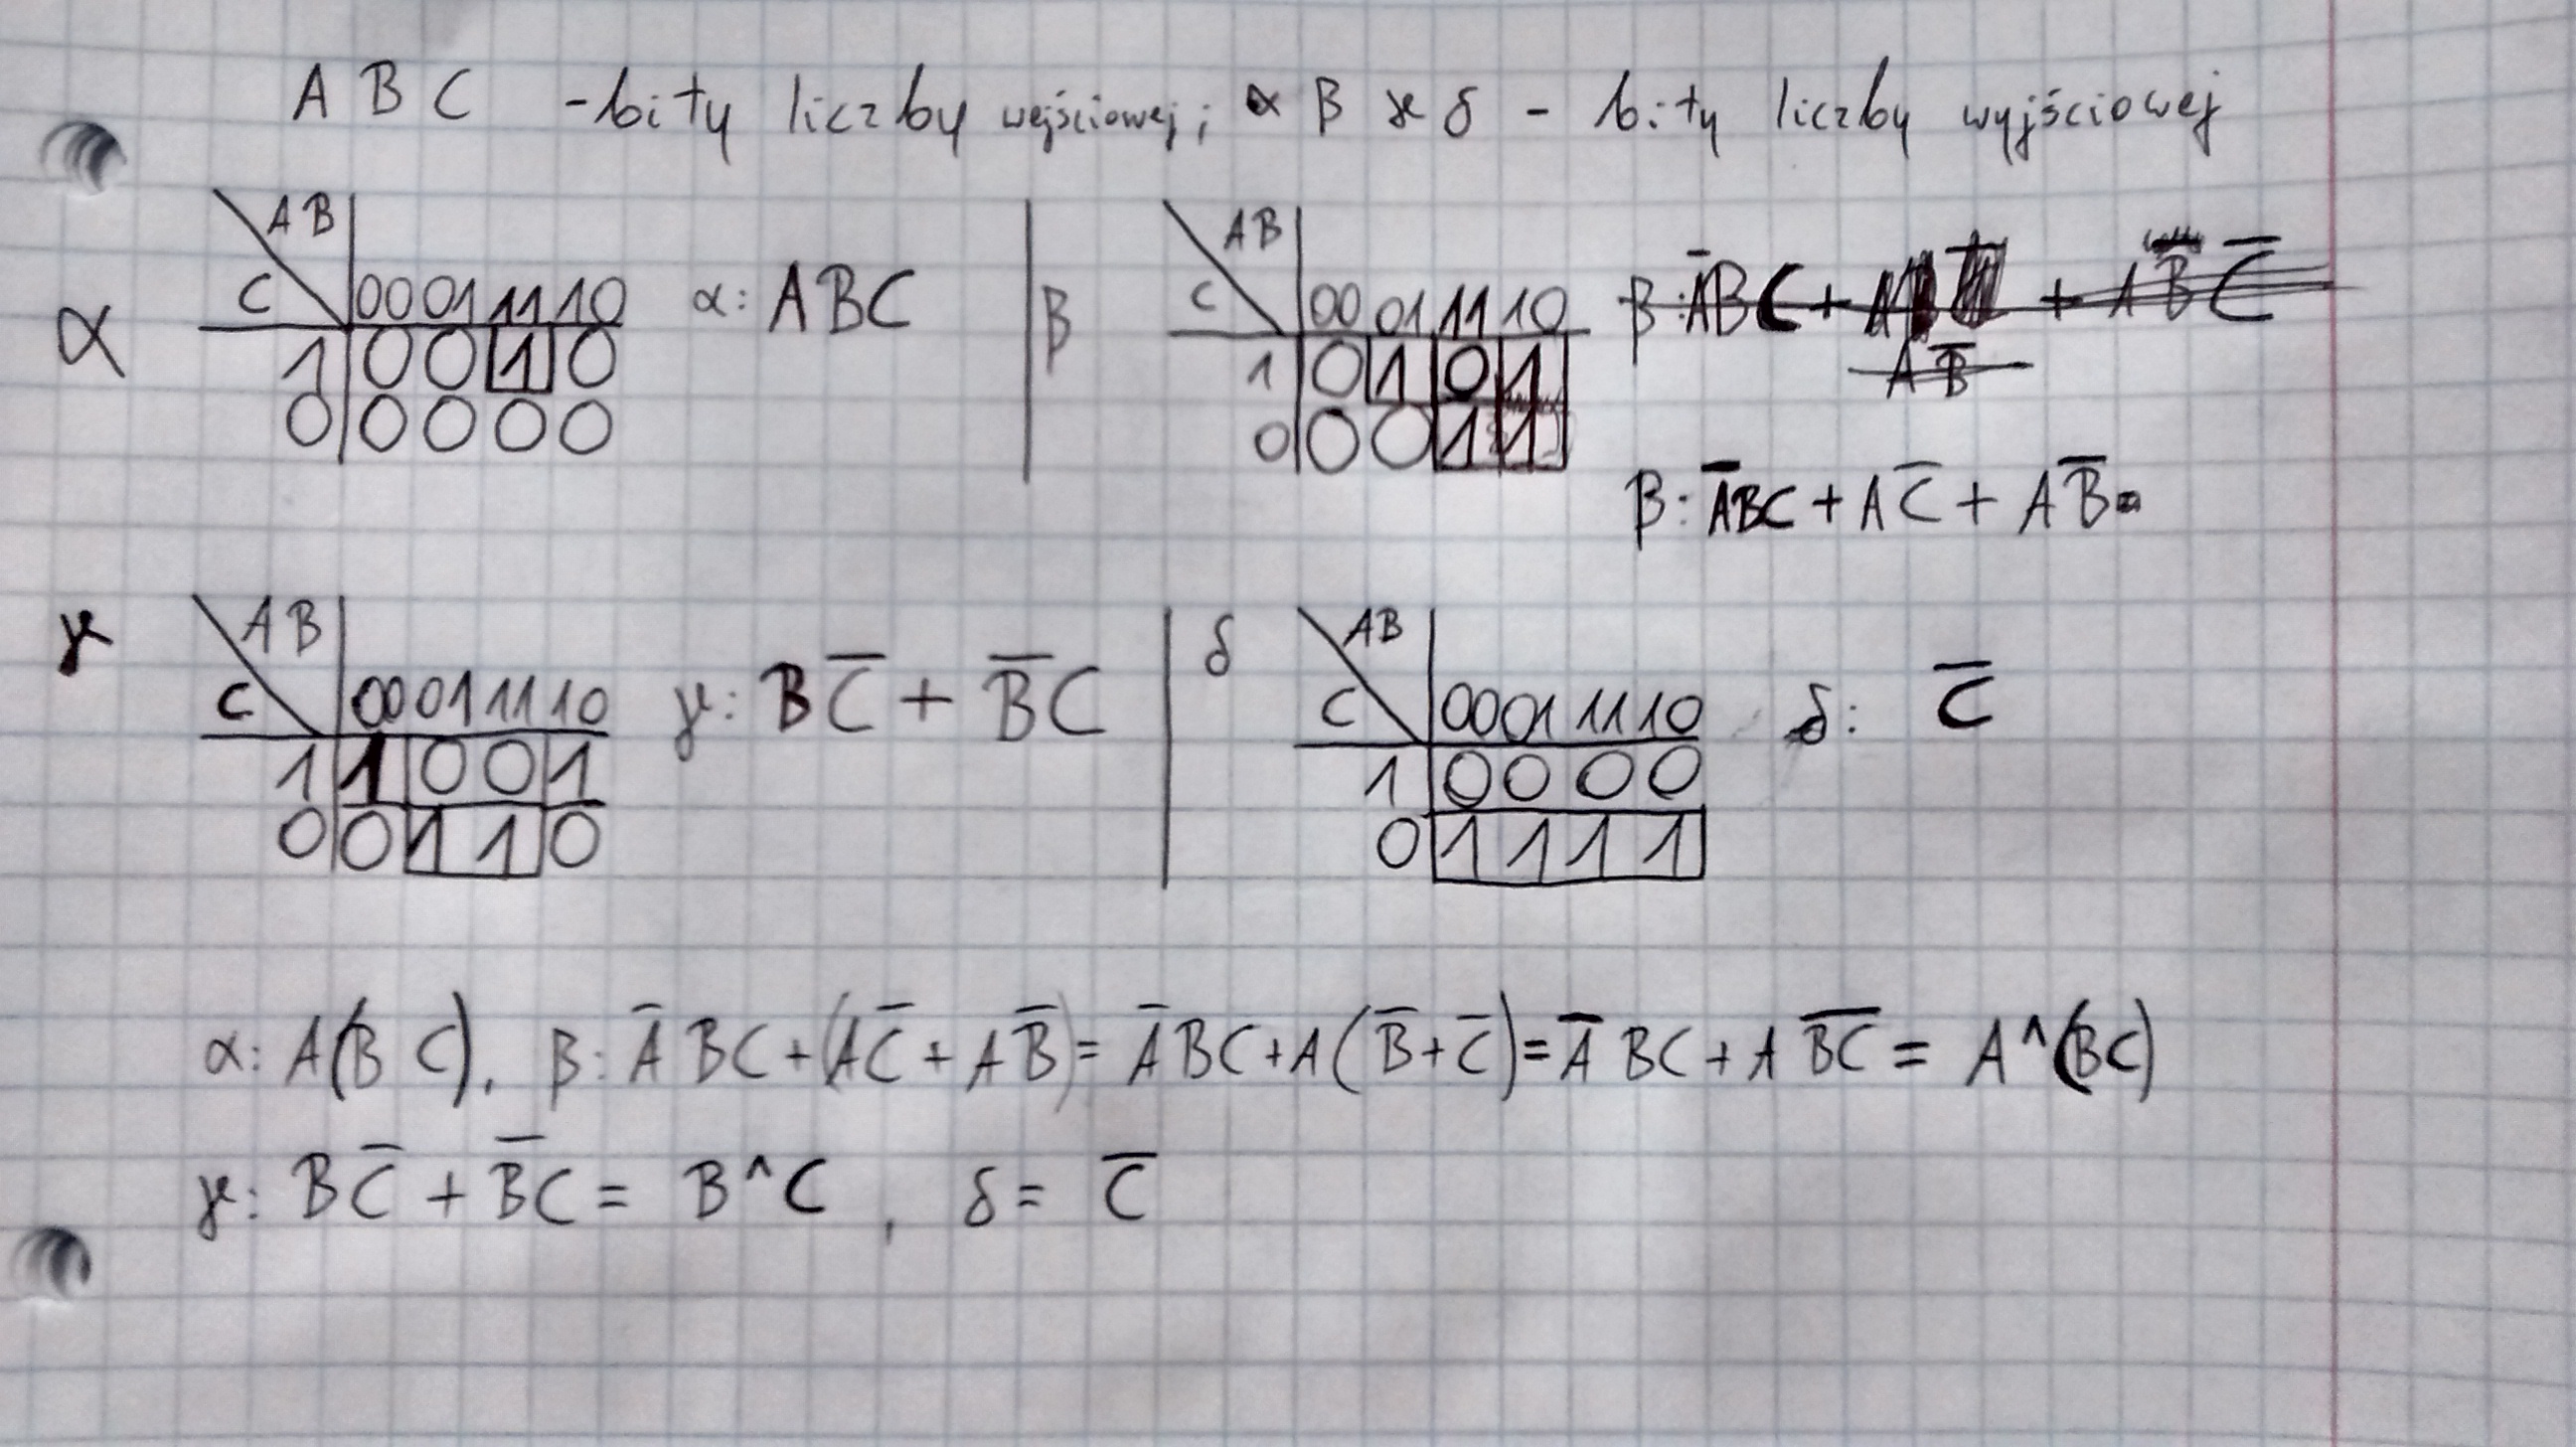 A B C - bity liczby wejściowej; α β γ δ - bity liczby wyjściowej
α
A B
C 00 01 11 10
1 0 0 1 0
0 0 0 0 0
α: A B C
β
A B
C 00 01 11 10
1 0 1 0 1
0 0 0 1 1
β: A̅BC + A B̅ C̅
A B̅
β: A̅BC + AC̅ + AB̅
γ
A B
C 00 01 11 10
1 1 0 0 1
0 0 1 1 0
γ: BC̅ + B̅C
δ
AB
C 00 01 11 10
1 0 0 0 0
0 1 1 1 1
δ: C̅
α: A(B C), β: A̅ BC + (AC̅ + AB̅) = A̅BC + A(B̅+C̅) = A̅ BC + A B̅C̅ = A^(BC)
γ: BC̅ + B̅C = B^C , δ = C̅